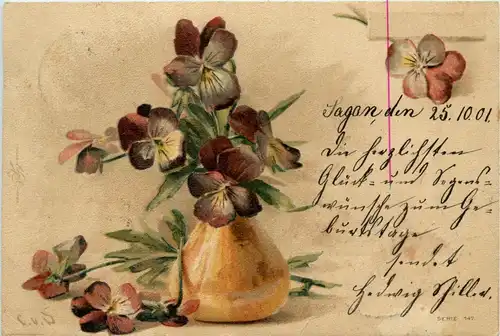 Sagan, den 25.10.01.
Die herzlichsten
Glück- und Segens-
wünsche zum Ge-
burtstage
sendet
Hedwig Schiller.
C.v.S
SERIE 141.